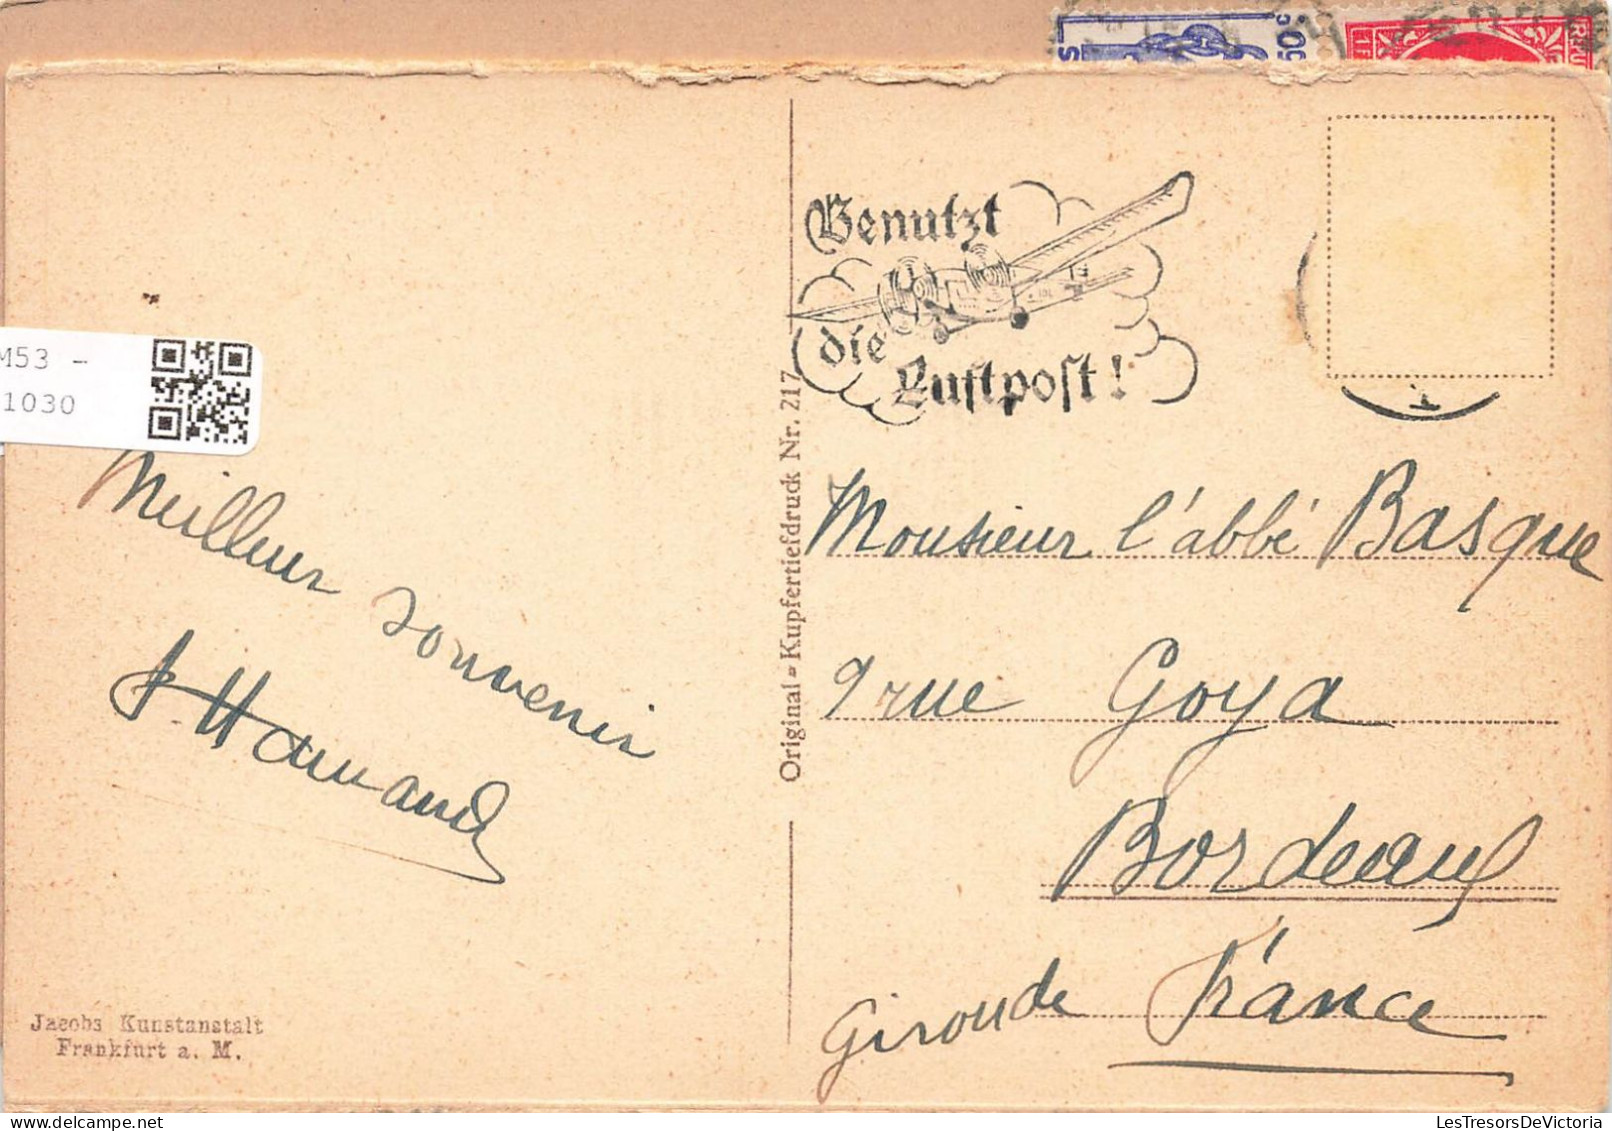 50c
1F
M53 -
1030
Benutzt
die
Luftpost!
Original-Kupfertiefdruck Nr. 217
Meilleur souvenir
Monsieur l'abbé Basque
9 rue Goya
Bordeaux
Gironde France
Jacobs Kunstanstalt
Frankfurt a. M.
LesTresorsDeVictoria